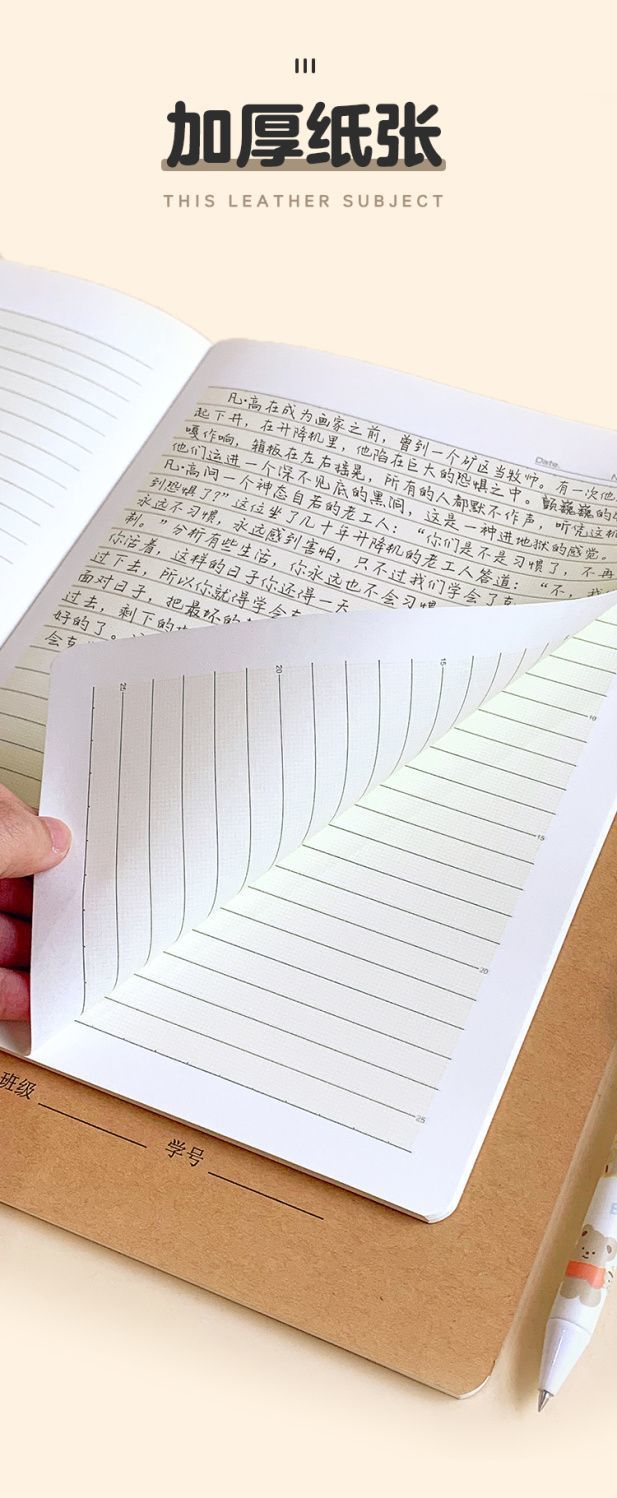 加厚纸张
THIS LEATHER SUBJECT
Date.
凡·高在成为画家之前，曾到一个矿区当牧师。有一次他
起下井，在升降机里，他陷在巨大的恐惧之中。颤巍巍的
嘎作响，箱板在左右摇晃，所有的人都默不作声，听凭这机
他们运进一个深不见底的黑洞，这是一种进地狱的感觉。
凡·高问一个神态自若的老工人：“你们是不是习惯了，不再
到恐惧了？”这位坐了几十年升降机的老工人答道：“不，我
永远不习惯，永远感到害怕，只不过我们学会了克
制。”分析有些生活，你永远也不会习惯
你活着，这样的日子你还得一天
过下去，所以你就得学会
面对日子，把最坏的
过去，剩下的
好的了。
会
25
20
15
10
15
20
25
班级
学号